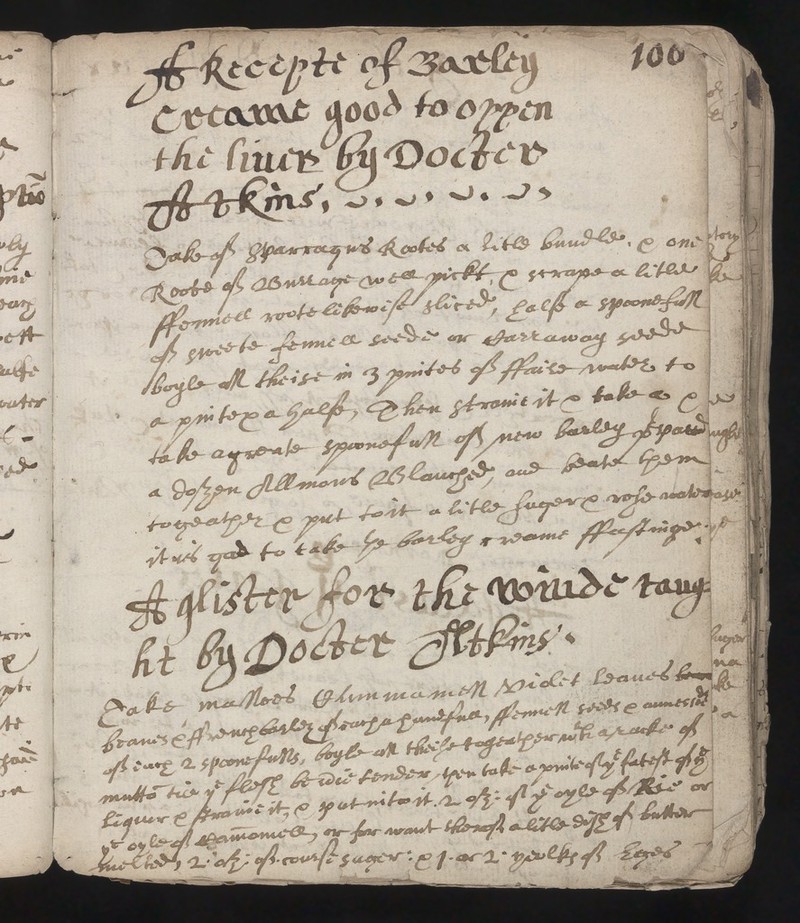 100
A Recepte of Barley
Creame good to oppen
the liuer by Docter
Atkins.
Take of Sparragus Rootes a litle bundle, & one
Roote of Burrage well pickt, & scrape a litle
ffennell roote likewise sliced, halfe a spoonefull
of sweete fennell seede or Carraway seede
boyle all theise in 3 pintes of ffaire water to
a pinte & a halfe, Then straine it & take a &
take a greate spoonefull of new barley
a dozen Allmons Blanched, and beate them
togeather & put to it a litle suger & rose water
it is god to take ye barley creame ffastinge.
A glister for the winde taug-
ht by Docter Atkins.
Take malloes Violet leaues
beanes & ffrench barley of each a handfull, ffennell seeds &
of each 2 spoonefulls, boyle all theise togeather wth a racke of
mutto till ye flesh be tender, then take a pinte of ye fatest of ye
liquor & straine it, & put into it 2 oz: of ye oyle of Rue or
ye oyle of Camomell, or for want therof a litle dish of butter
melted, 2 oz: of course suger: & 1. or 2: yeolkes of Egges